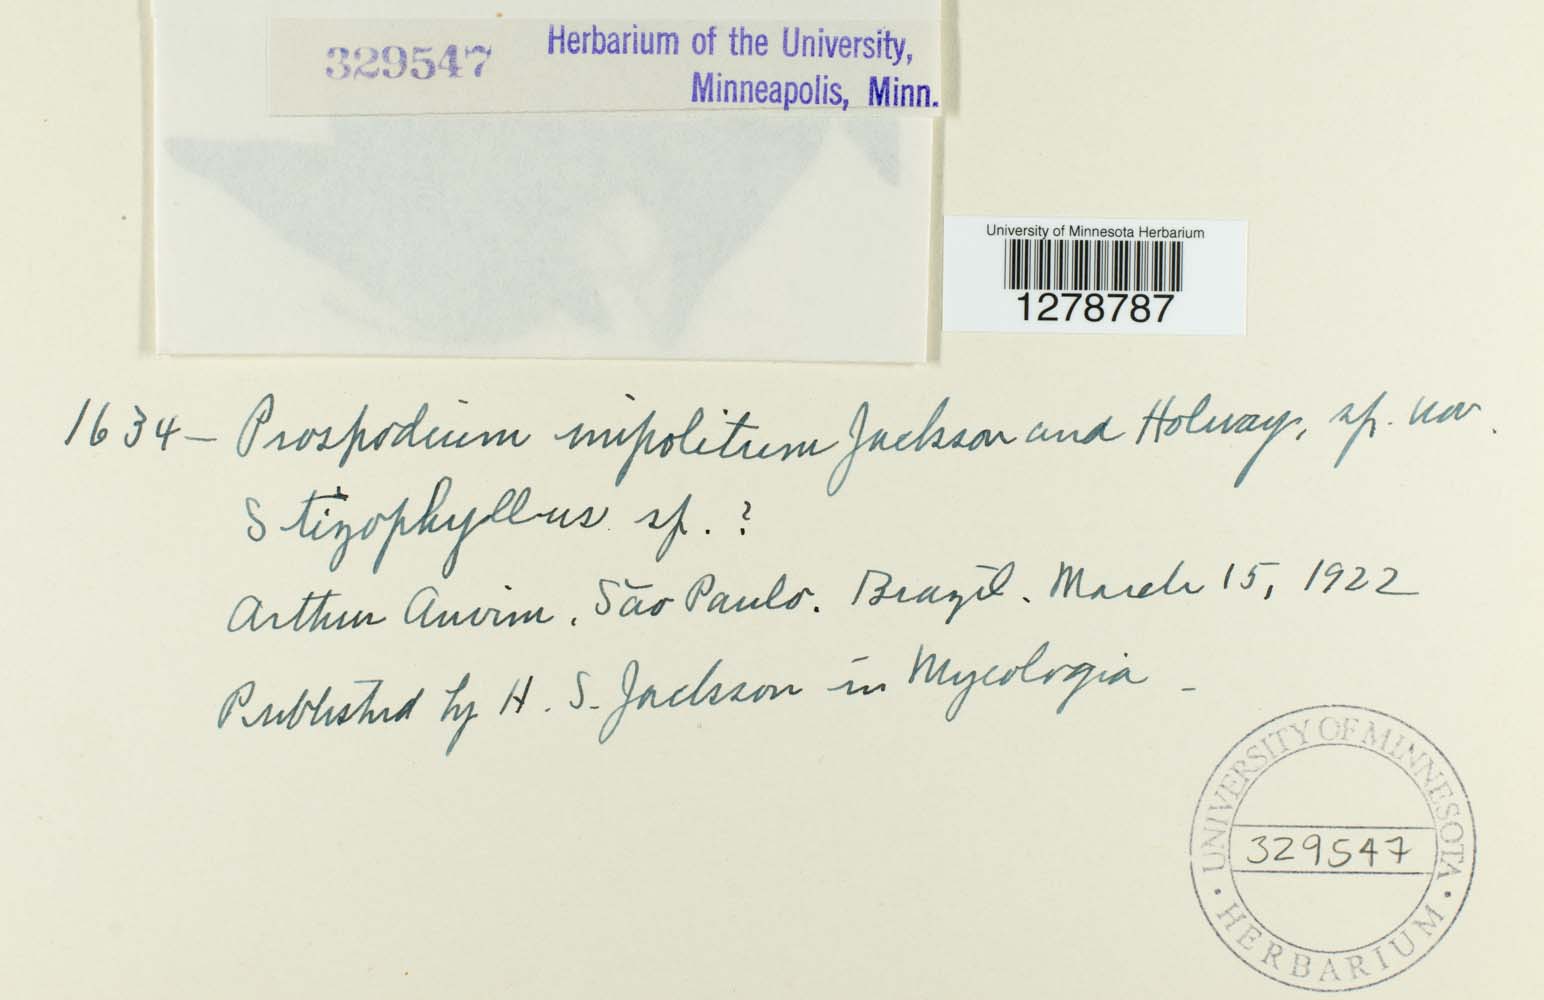 329547 Herbarium of the University,
Minneapolis, Minn.
University of Minnesota Herbarium
1278787
1634 – Prospodium impolitum Jackson and Holway, sp. nov.
Stizophyllus sp. ?
Arthur Auvim, São Paulo. Brazil. March 15, 1922
Published by H. S. Jackson in Mycologia –
UNIVERSITY OF MINNESOTA
329547
HERBARIUM